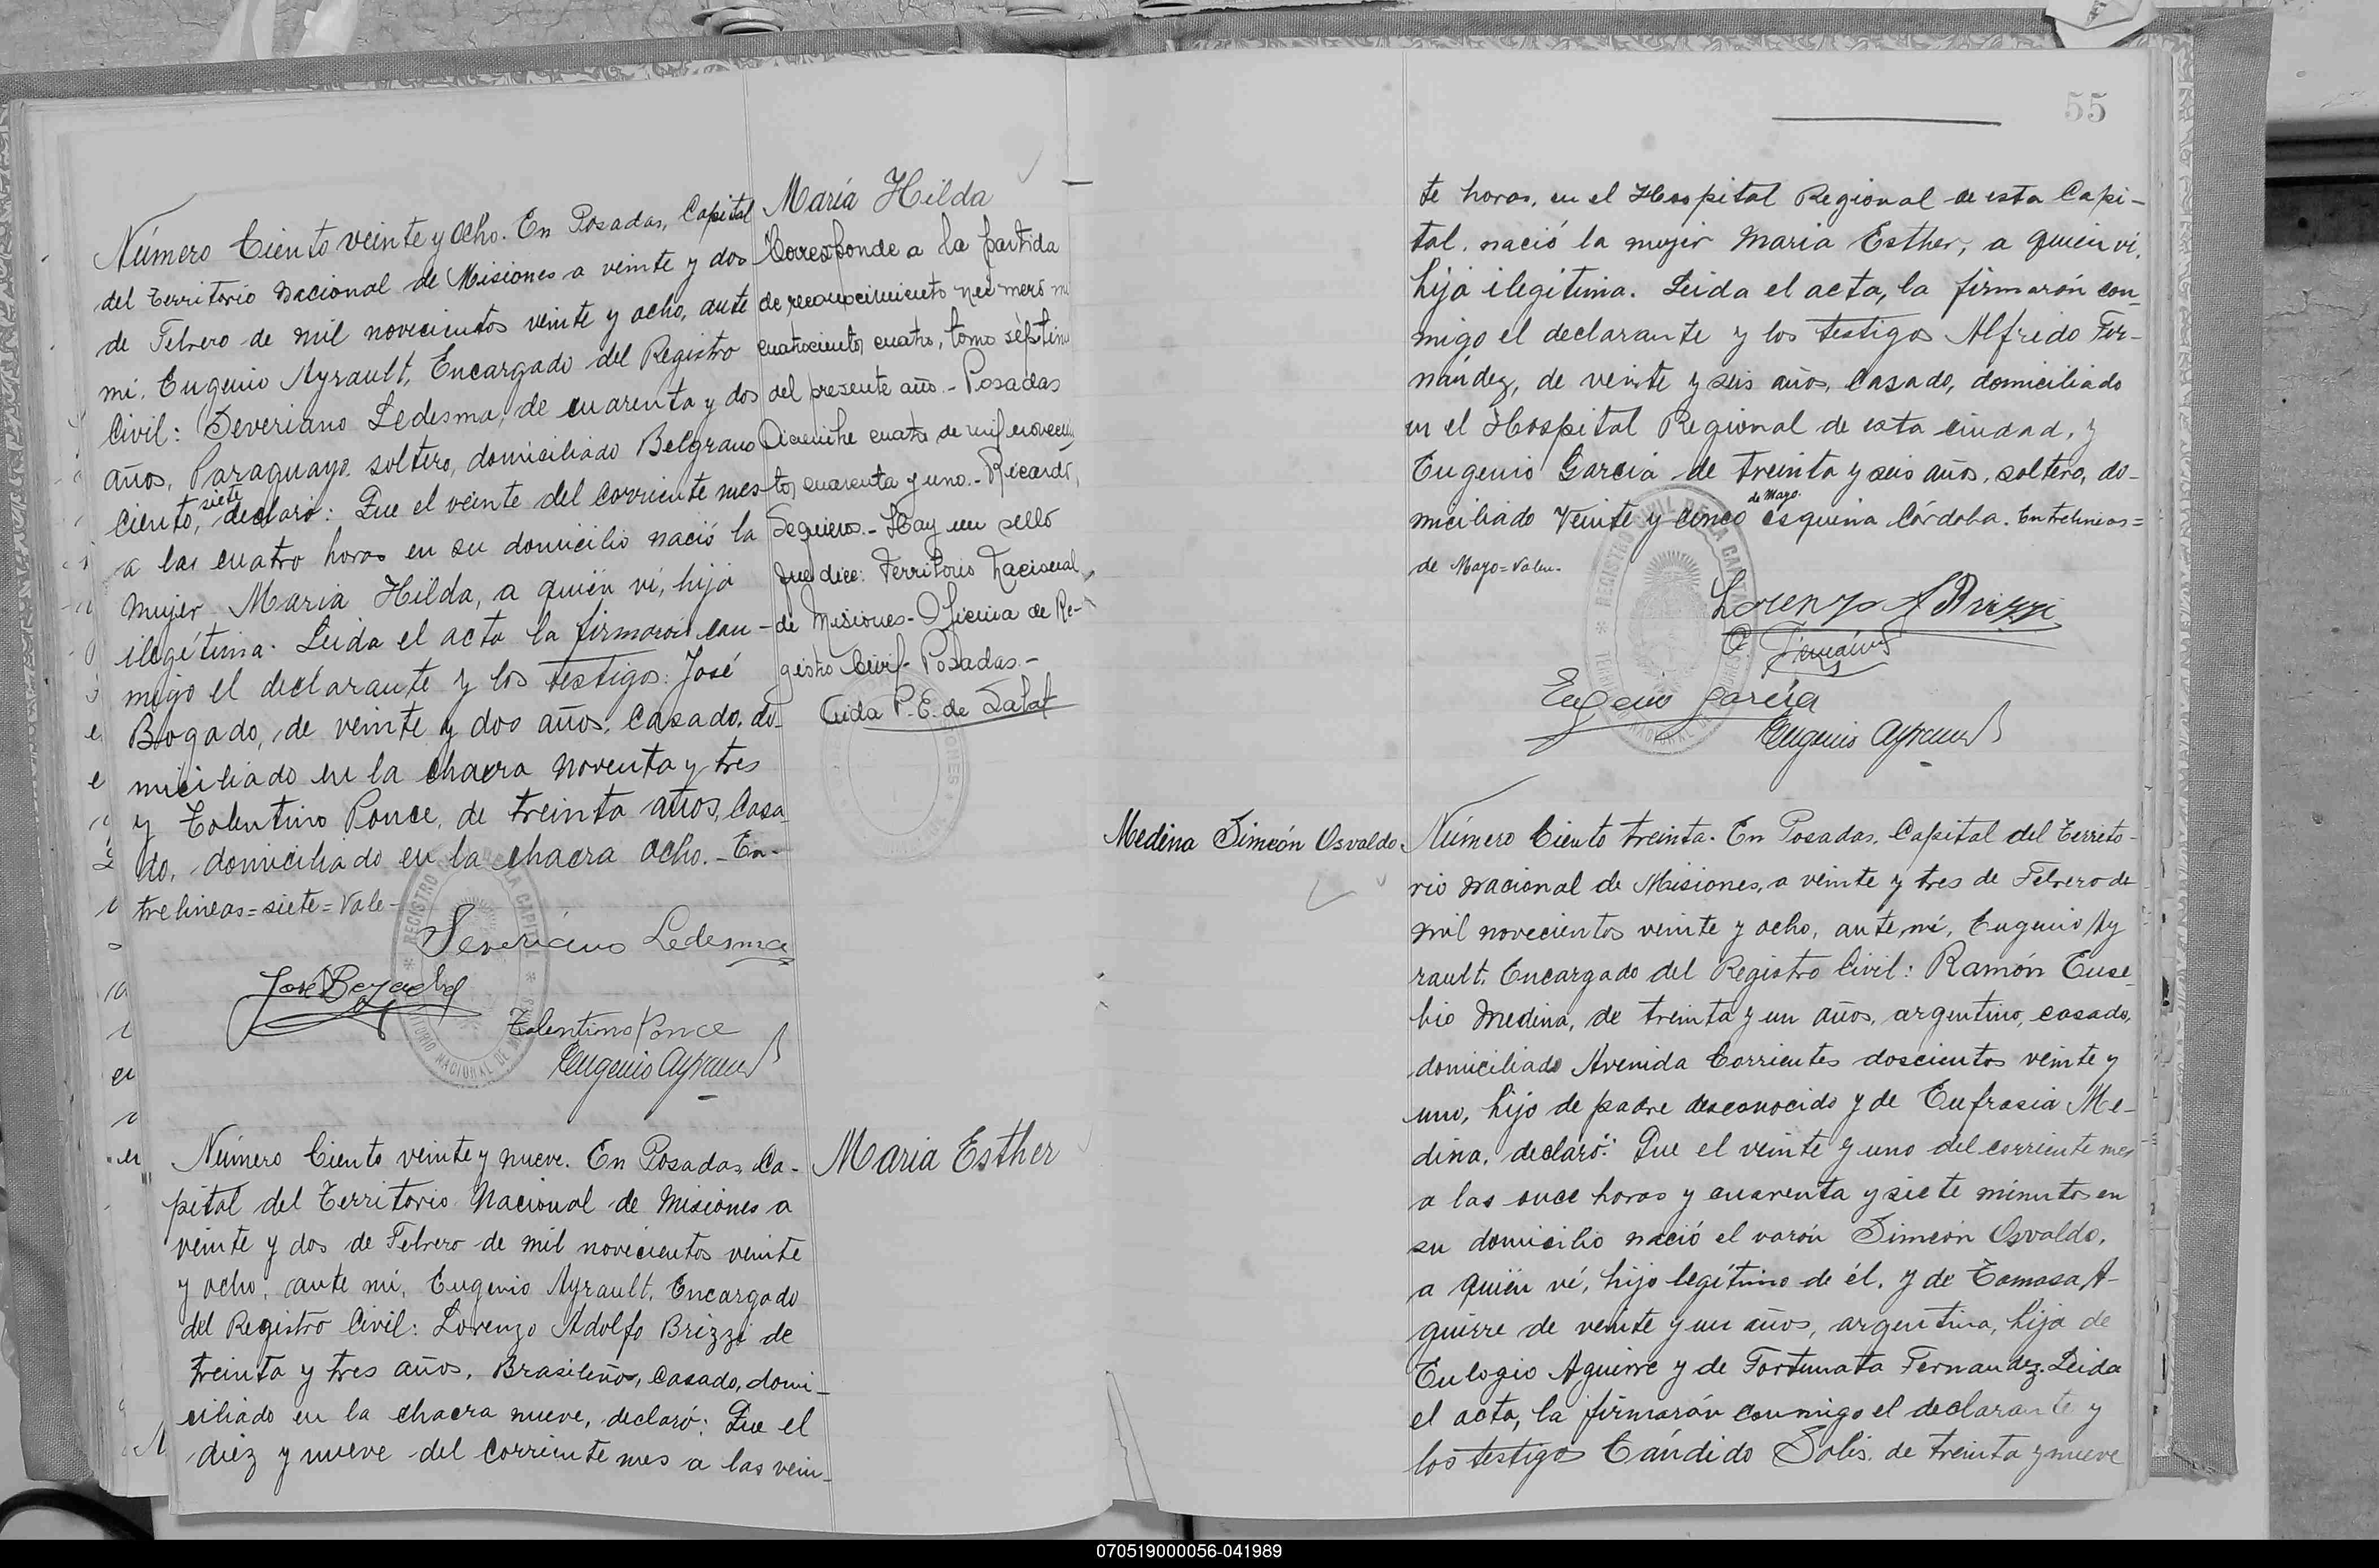 Número Ciento veinte y ocho. En Posadas, Capital
del Territorio Nacional de Misiones a veinte y dos
de Febrero de mil novecientos veinte y ocho, ante
mí, Eugenio Ayrault, Encargado del Registro
Civil: Severiano Ledesma, de cuarenta y dos
años, Paraguayo, soltero, domiciliado Belgrano
siete
ciento, declaró: Que el veinte del corriente mes
a las cuatro horas en su domicilio nació la
mujer Maria Hilda, a quien ví, hija
ilegítima. Leida el acta la firmaron con-
migo el declarante y los testigos: José
Bogado, de veinte y dos años, casado, do-
miciliado en la chacra noventa y tres
y Tolentino Ponce, de treinta años, Casa-
do, domiciliado en la chacra ocho. - En-
trelineas=siete=Vale-
Severiano Ledesma
José Bogado
Tolentino Ponce
Eugenio Ayrault
María Hilda
Corresponde a la partida
de reconocimiento número
cuatrocientos cuatro, tomo séptimo
del presente año.- Posadas
Diciembre cuatro de mil novecien
tos cuarenta y uno.- Ricardo
Sequeiros.- Hay un sello
que dice: Territorio Nacional
de Misiones- Oficina de Re-
gistro Civil- Posadas.-
P. E. de
Número Ciento veinte y nueve. En Posadas, Ca-
pital del Territorio Nacional de Misiones a
veinte y dos de Febrero de mil novecientos veinte
y ocho, ante mí, Eugenio Ayrault, Encargado
del Registro Civil: Lorenzo Adolfo Brizzi de
treinta y tres años, Brasileño, Casado, domi-
ciliado en la chacra nueve, declaró: Que el
diez y nueve del corriente mes a las vein-
Maria Esther
55
te horas, en el Hospital Regional de esta Capi-
tal, nació la mujer Maria Esther, a quien ví,
hija ilegítima. Leida el acta, la firmarón con-
migo el declarante y los testigos Alfredo Fer-
nández, de veinte y seis años, casado, domiciliado
en el Hospital Regional de esta ciudad, y
Eugenio Garcia de treinta y seis años, soltero, do-
de Mayo.
miciliado Veinte y Cinco esquina Córdoba. Entrelineas=
de Mayo=Vale-
Lorenzo A Brizzi
A Fernández
Eugenio García
Eugenio Ayrault
Medina Simeón Osvaldo.
Número Ciento treinta. En Posadas, Capital del Territo-
rio Nacional de Misiones, a veinte y tres de Febrero de
mil novecientos veinte y ocho, ante mí, Eugenio Ay
rault, Encargado del Registro Civil: Ramón Euse-
bio Medina, de treinta y un años, argentino, casado,
domiciliado Avenida Corrientes doscientos veinte y
uno, hijo de padre desconocido y de Eufrasia Me-
dina, declaró: Que el veinte y uno del corriente mes
a las once horas y cuarenta y siete minutos en
su domicilio nació el varón Simeón Osvaldo,
a quien ví, hijo legítimo de él, y de Tomasa A-
guirre de veinte y un años, argentina, hija de
Eulogio Aguirre y de Fortunata Fernandez. Leida
el acta, la firmarón conmigo el declarante y
los testigos Cándido Solis, de treinta y nueve
070519000056-041989